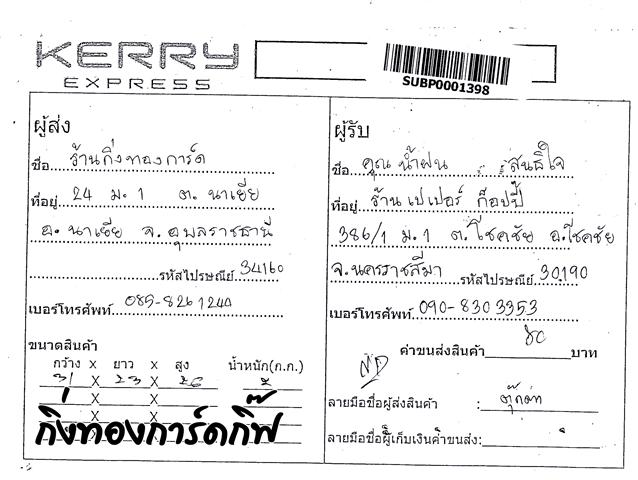 KERRY
EXPRESS
SUBP0001398
ผู้ส่ง
ชื่อ ร้านกิ่งทองการ์ด
ที่อยู่ 24 ม.1 ต. นาเยีย
อ. นาเยีย จ. อุบลราชธานี
รหัสไปรษณีย์ 34160
เบอร์โทรศัพท์ 085-826 1240
ขนาดสินค้า
กว้าง x ยาว x สูง น้ำหนัก(ก.ก.)
31 x 23 x 26
x x
x x
กิ่งทองการ์ดกิ๊ฟ
ผู้รับ
ชื่อ คุณ น้ำฝน สนธิใจ
ที่อยู่ ร้าน เปเปอร์ ก็อปปี้
386/1 ม.1 ต.โชคชัย อ.โชคชัย
จ.นครราชสีมา รหัสไปรษณีย์ 30190
เบอร์โทรศัพท์ 090-830 3353
ค่าขนส่งสินค้า 80 บาท
ลายมือชื่อผู้ส่งสินค้า : ตุ๊กตา
ลายมือชื่อผู้เก็บเงินค่าขนส่ง: